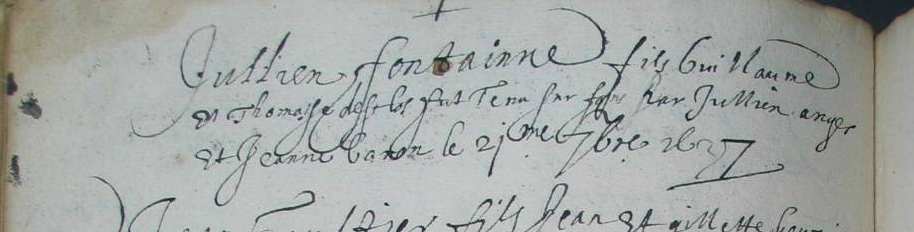 Jullien fontainne fils Guillaume
Et Thomasse fut Tenu sur fons par Jullien anger
Et Jeanne baron le 21me 7bre 1637
Jean fils Jean Et gillette